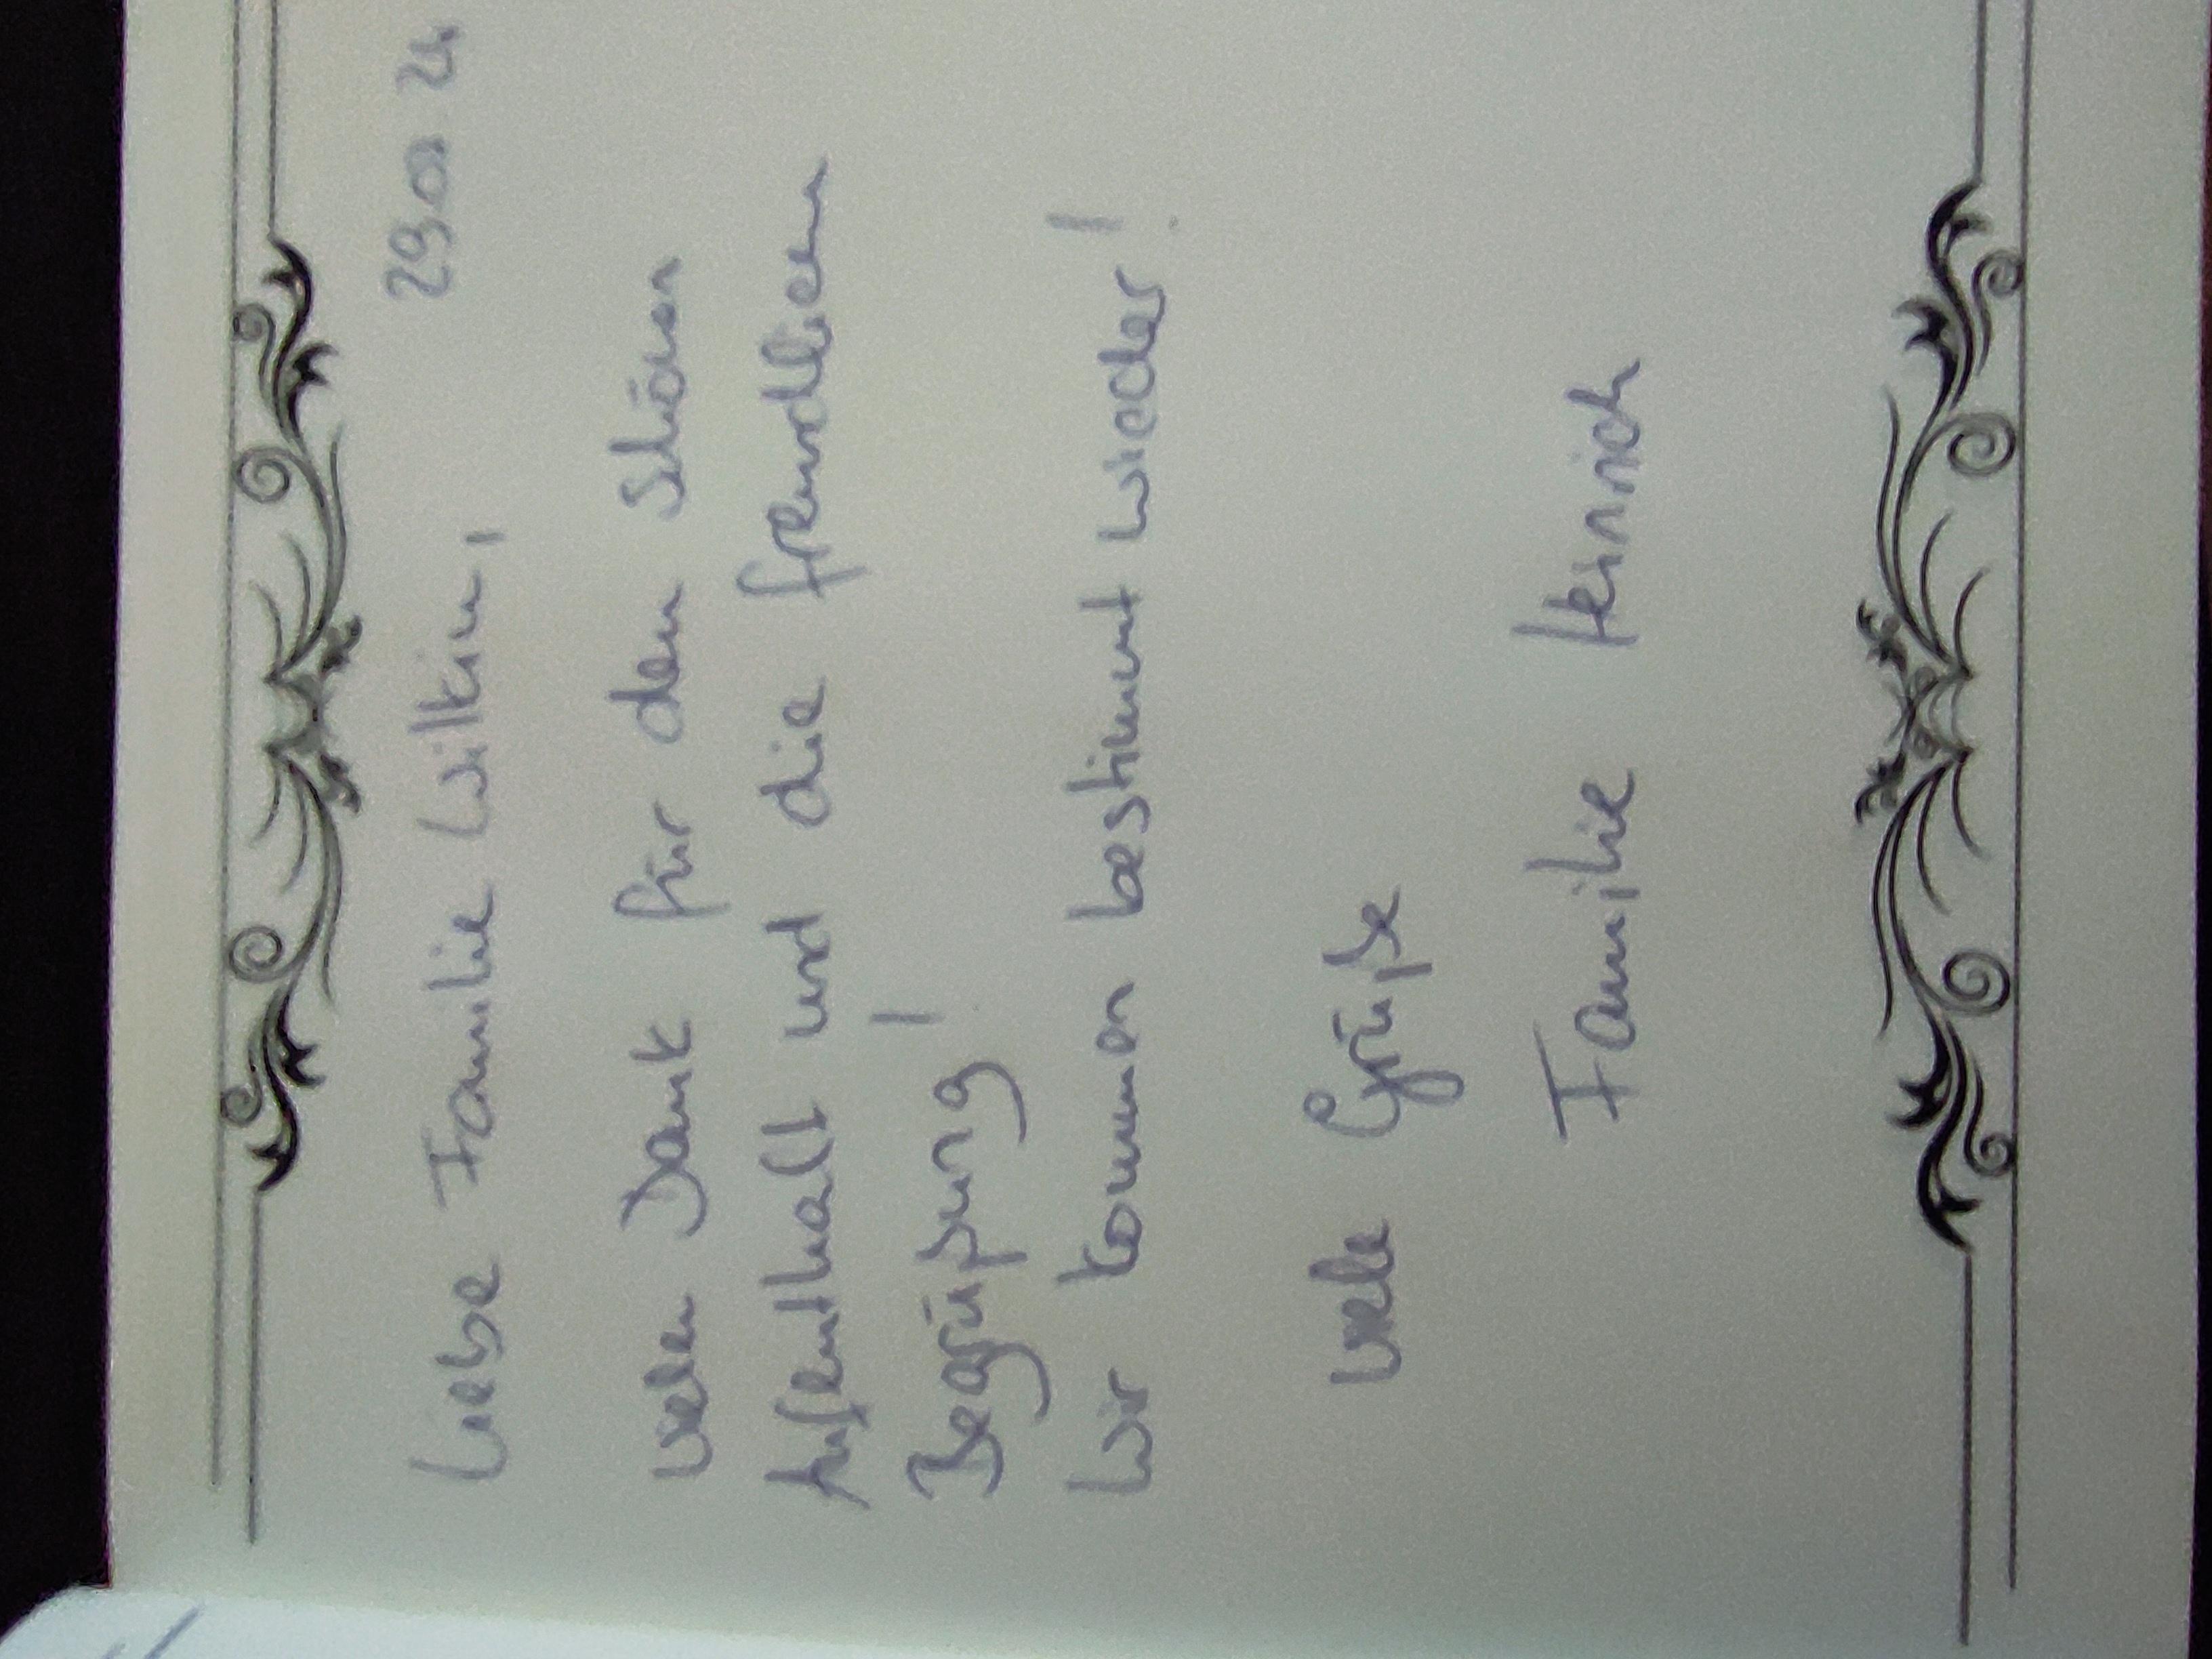 29.03.24
Liebe Familie Wilkin,
vielen Dank für den schönen
Aufenthalt und die freundlichen
Begrüßung!
Wir kommen bestimmt wieder!
Viele Grüße
Familie Heinrich